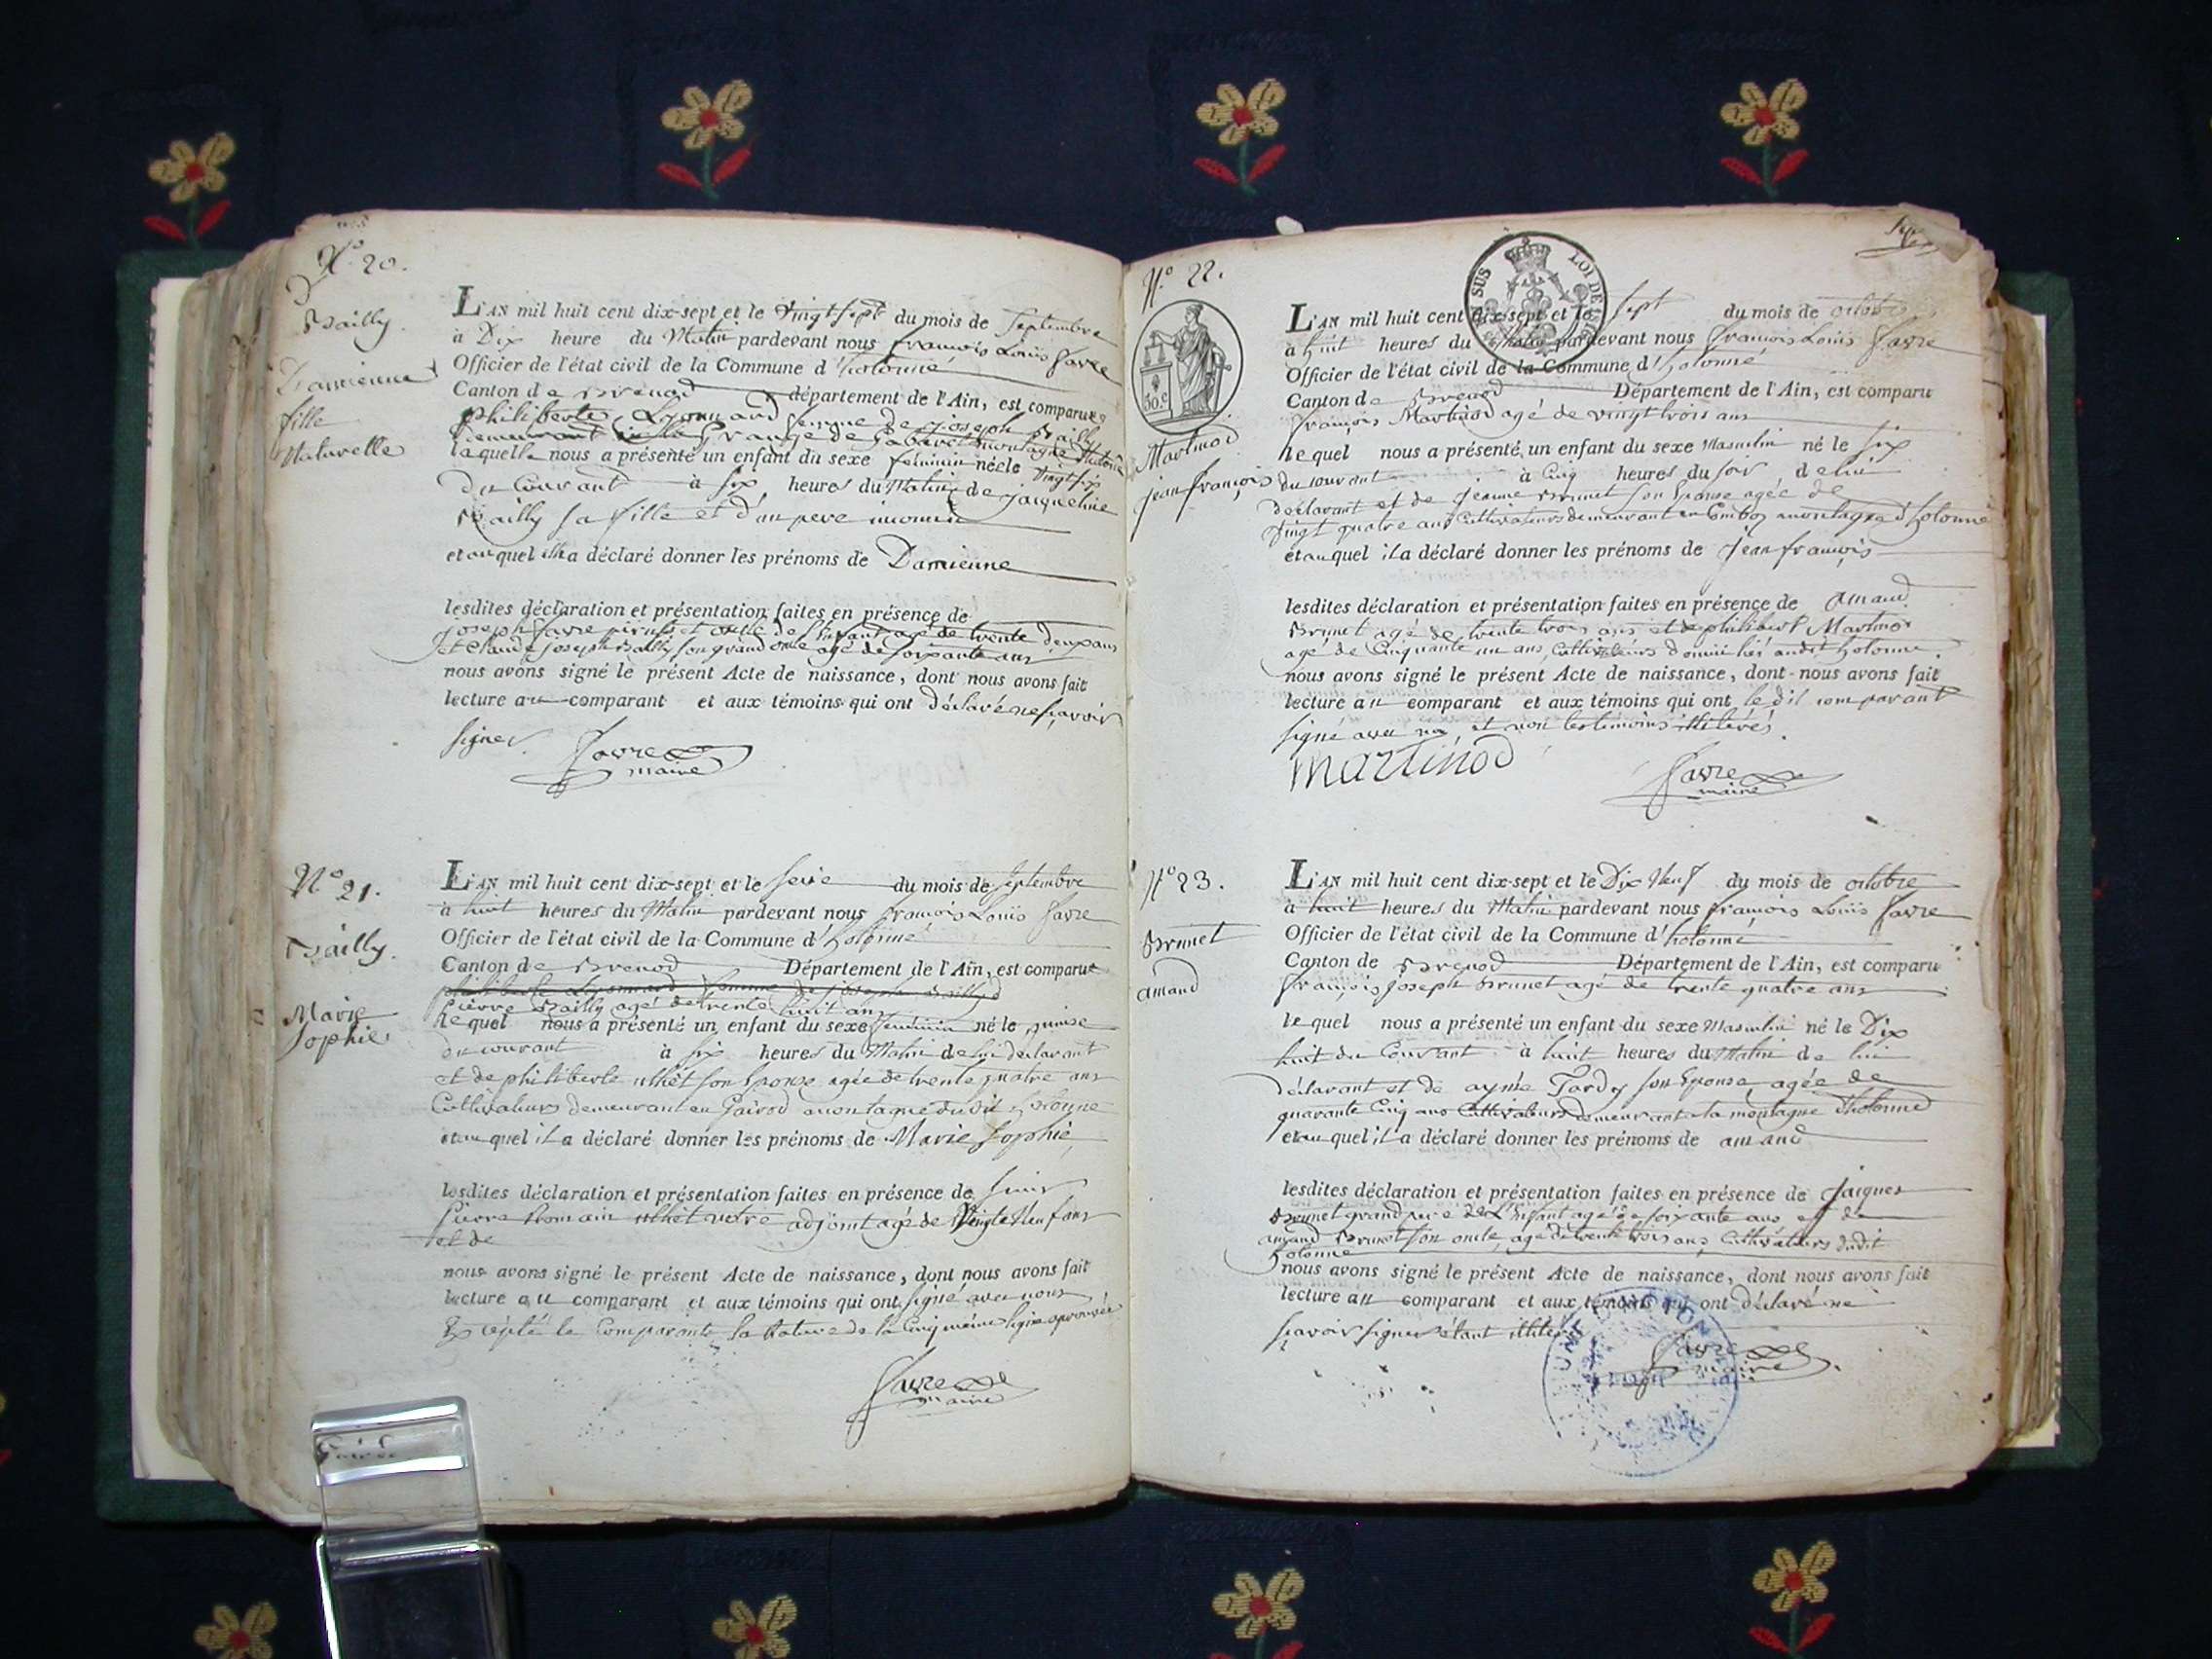 N.° 20.
Bailly.
Damienne
fille
Naturelle
L'AN mil huit cent dix-sept et le Vingt sept du mois de Septembre
à Dix heure du Matin pardevant nous François Louis Favre
Officier de l'état civil de la Commune d'hotonne
Canton de Brenod département de l'Ain, est comparue
philiberte Lyonnard femme de Joseph Bailly
demeurant Grange de montagne
laquelle nous a présenté un enfant du sexe féminin née le Vingt six
du Courant à six heures du Matin de jacqueline
Bailly sa fille et d'un pere inconnu
et auquel elle a déclaré donner les prénoms de Damienne
lesdites déclaration et présentation faites en présence de
joseph favre oncle de l'Enfant agé de trente deux ans
et Claude joseph Bailly son grand oncle agé de soixante ans
nous avons signé le présent Acte de naissance, dont nous avons fait
lecture au comparant et aux témoins qui ont déclaré ne sçavoir
signer.
Favre
maire
N° 21.
Bailly.
Marie
Sophie
L'AN mil huit cent dix-sept et le seize du mois de septembre
à huit heures du Matin pardevant nous françois Louis Favre
Officier de l'état civil de la Commune d'hotonne
Canton de Brenod Département de l'Ain, est comparu
philiberte Lyonnard femme de joseph Bailly
pierre Bailly agé de trente huit ans
lequel nous a présenté un enfant du sexe feminin né le quinse
du courant à six heures du Matin de lui déclarant
et de philiberte son Epouse agée de trente quatre ans
Cultivateurs demeurant en montagne dudit hotonne
et auquel il a déclaré donner les prénoms de Marie Sophie
lesdites déclaration et présentation faites en présence de
pierre Romain notre adjoint agé de Vingt Neuf ans
et de
nous avons signé le présent Acte de naissance, dont nous avons fait
lecture au comparant et aux témoins qui ont signé avec nous
Excepté le Comparant la Rature de la Cinquième ligne aprouvée
Favre
maire
N.° 22.
50.c
SUS LOI DE
Martinod
jean françois
L'AN mil huit cent dix-sept et le sept du mois de octobre
à huit heures du Matin pardevant nous françois Louis Favre
Officier de l'état civil de la Commune d'hotonne
Canton de Brenod Département de l'Ain, est comparu
françois Martinod agé de vingt trois ans
lequel nous a présenté un enfant du sexe Masculin né le six
du courant à Cinq heures du soir de lui
déclarant et de jeanne Brunet son Epouse agée de
Vingt quatre ans Cultivateurs demeurant en montagne d'hotonne
et auquel il a déclaré donner les prénoms de jean françois
lesdites déclaration et présentation faites en présence de Amand
Brunet agé de trente trois ans et de philibert Martinod
agé de Cinquante un ans, Cultivateurs domiciliés audit hotonne.
nous avons signé le présent Acte de naissance, dont nous avons fait
lecture au comparant et aux témoins qui ont ledit comparant
signé avec nous et non les témoins illitérés.
Martinod
Favre
maire
N° 23.
Brunet
amand
L'AN mil huit cent dix-sept et le Dix Neuf du mois de octobre
à huit heures du Matin pardevant nous françois Louis Favre
Officier de l'état civil de la Commune d'hotonne
Canton de Brenod Département de l'Ain, est comparu
françois joseph Brunet agé de trente quatre ans
lequel nous a présenté un enfant du sexe Masculin né le Dix
huit du Courant à huit heures du Matin de lui
déclarant et de aynée Tardy son Epouse agée de
quarante Cinq ans Cultivateurs demeurant montagne d'hotonne
et auquel il a déclaré donner les prénoms de amand
lesdites déclaration et présentation faites en présence de jacques
Brunet grand pere de L'Enfant agé de soixante ans et de
amand Brunet son oncle, agé de trente trois ans, Cultivateurs dudit
hotonne
nous avons signé le présent Acte de naissance, dont nous avons fait
lecture au comparant et aux témoins qui ont déclaré ne
sçavoir signer étant illiterés
Favre
maire